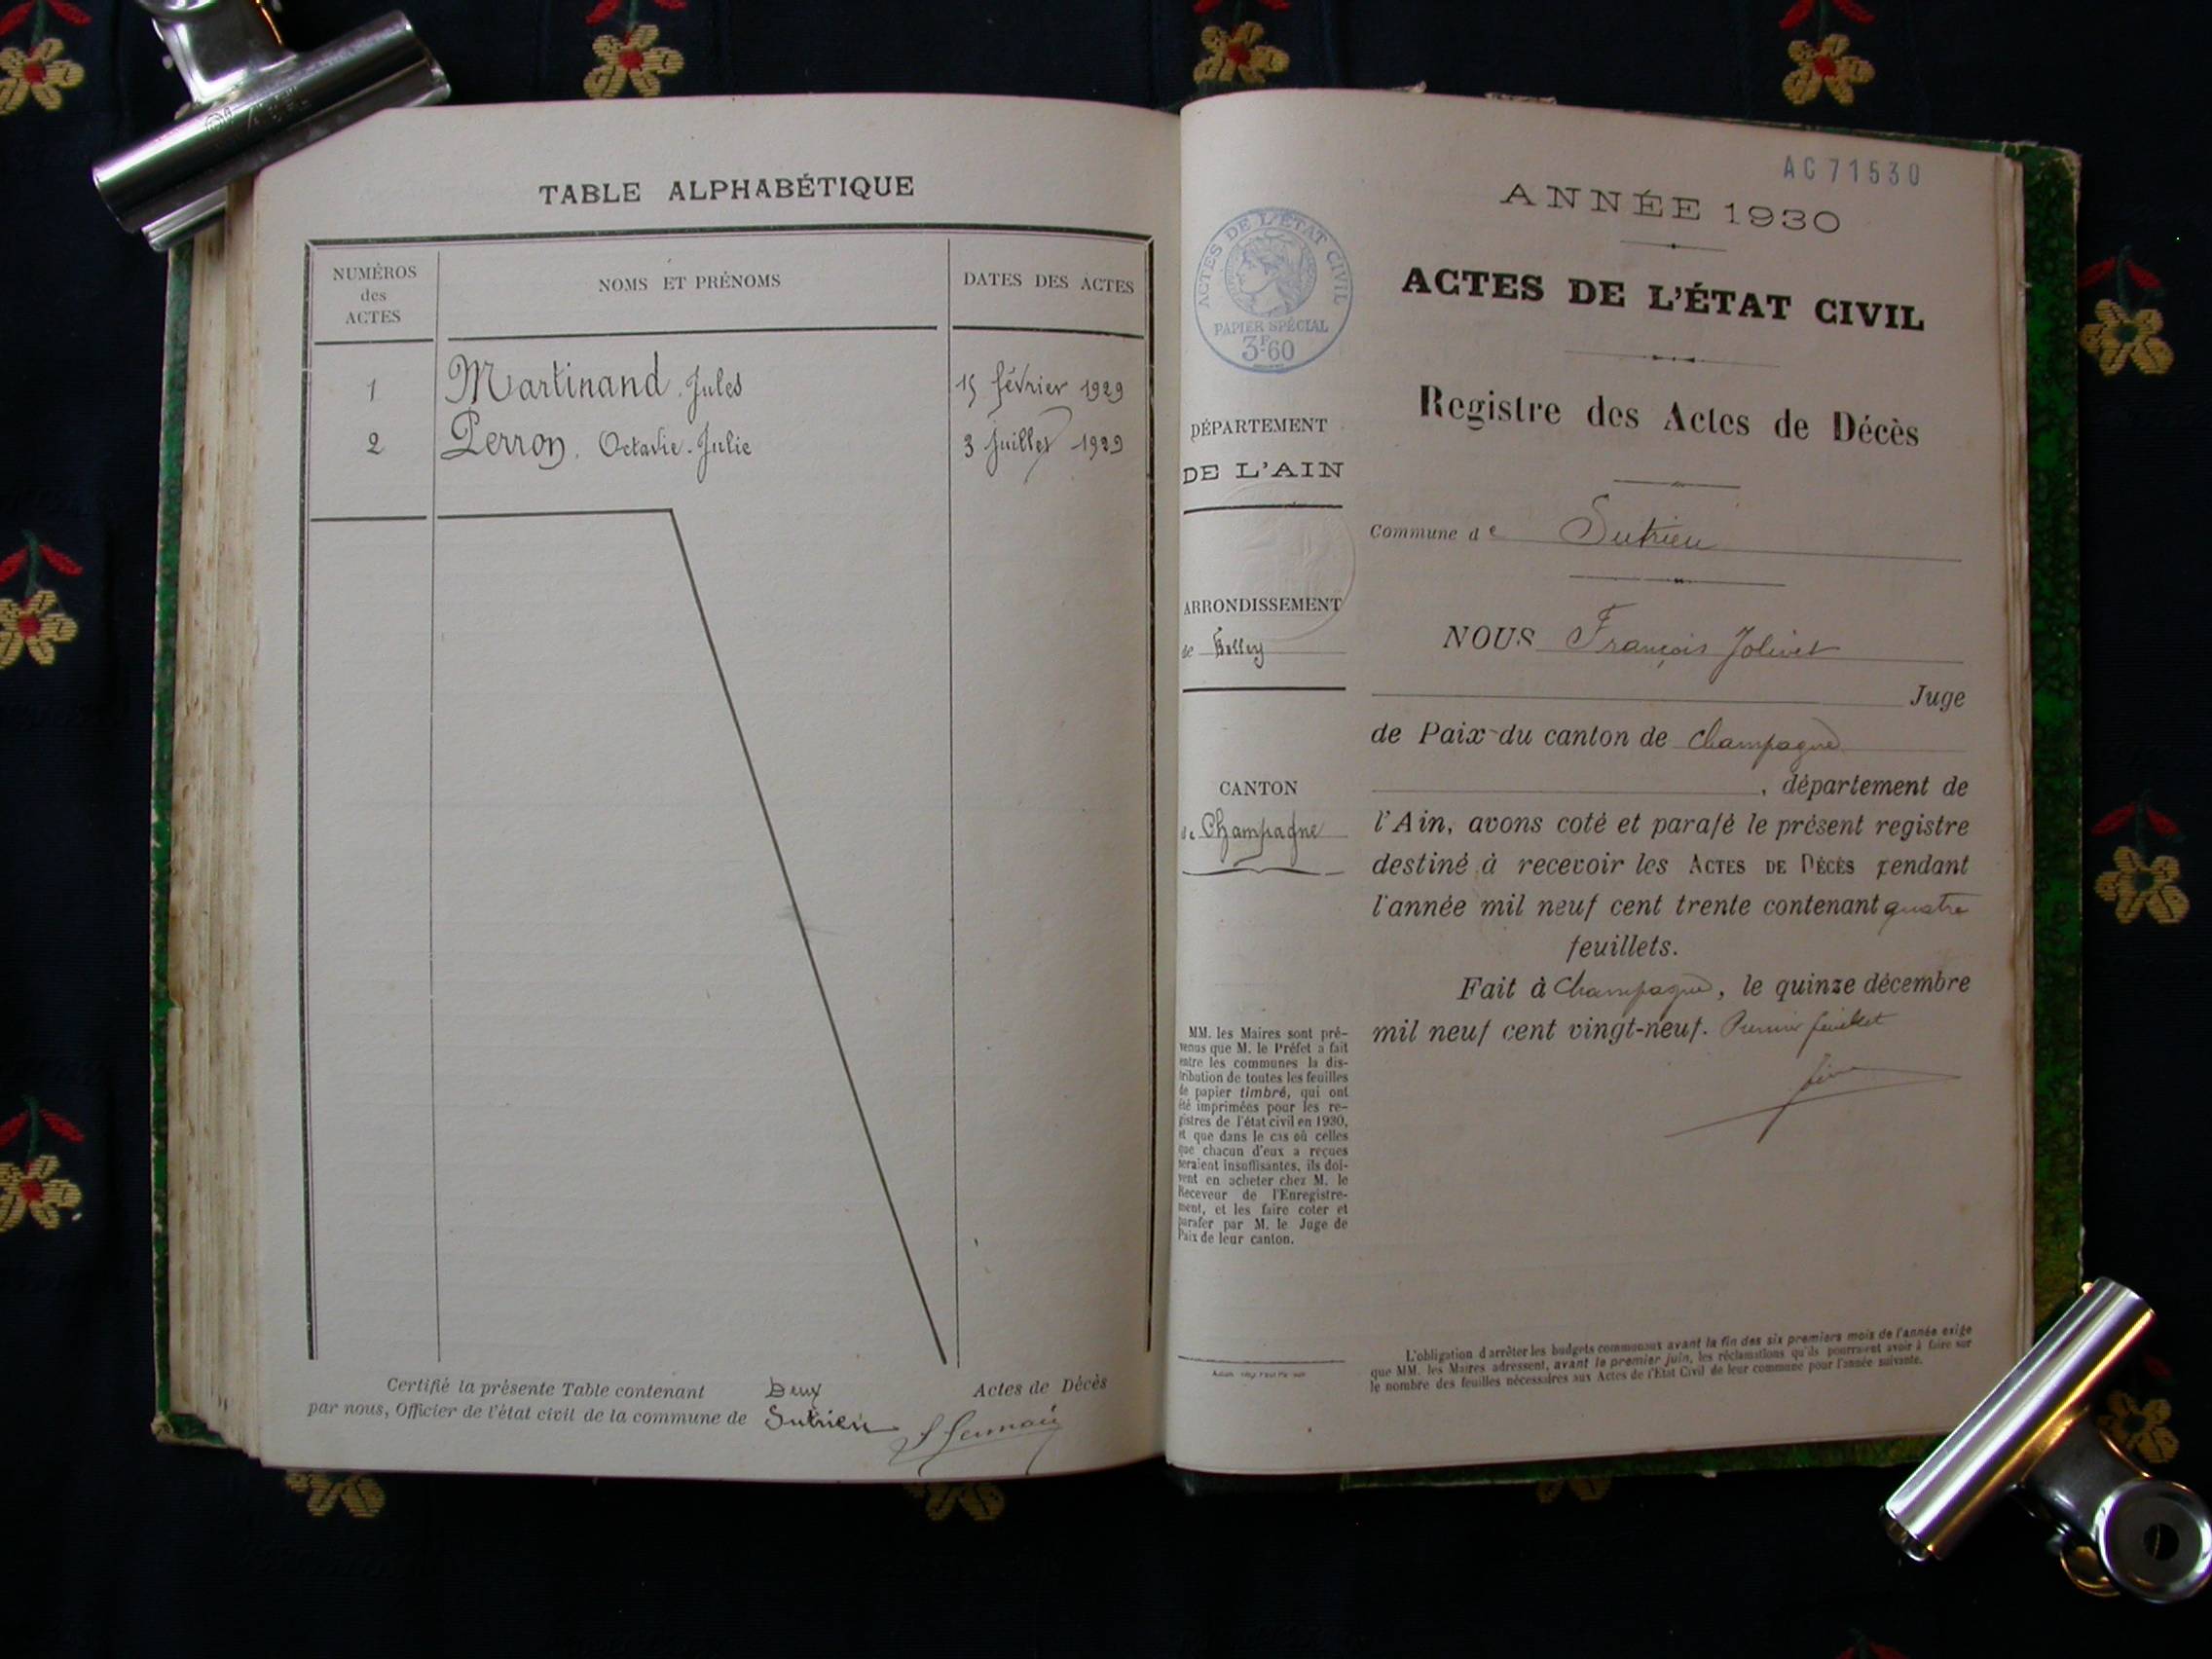 TABLE ALPHABÉTIQUE
NUMÉROS
des
ACTES
NOMS ET PRÉNOMS
DATES DES ACTES
1 Martinand Jules 15 février 1929
2 Perron, Octavie-Julie 3 juillet 1929
Certifié la présente Table contenant Deux Actes de Décès
par nous, Officier de l'état civil de la commune de Sutrieu
AC 71530
ANNÉE 1930
ACTES DE L'ÉTAT CIVIL
PAPIER SPÉCIAL
3F60
ACTES DE L'ÉTAT CIVIL
Registre des Actes de Décès
DÉPARTEMENT
DE L'AIN
ARRONDISSEMENT
de Belley
CANTON
de Champagne
MM. les Maires sont pré-
venus que M. le Préfet a fait
entre les communes la dis-
tribution de toutes les feuilles
de papier timbré, qui ont
été imprimées pour les re-
gistres de l'état civil en 1930,
et que dans le cas où celles
que chacun d'eux a reçues
seraient insuffisantes, ils doi-
vent en acheter chez M. le
Receveur de l'Enregistre-
ment, et les faire coter et
parafer par M. le Juge de
Paix de leur canton.
Commune de Sutrieu
NOUS François Jolivet
Juge
de Paix du canton de Champagne
, département de
l'Ain, avons coté et parafé le présent registre
destiné à recevoir les ACTES DE DÉCÈS pendant
l'année mil neuf cent trente contenant quatre
feuillets.
Fait à Champagne, le quinze décembre
mil neuf cent vingt-neuf. Premier feuillet
L'obligation d'arrêter les budgets communaux avant la fin des six premiers mois de l'année exige
que MM. les Maires adressent, avant le premier juin, les réclamations qu'ils pourraient avoir à faire sur
le nombre des feuilles nécessaires aux Actes de l'État Civil de leur commune pour l'année suivante.